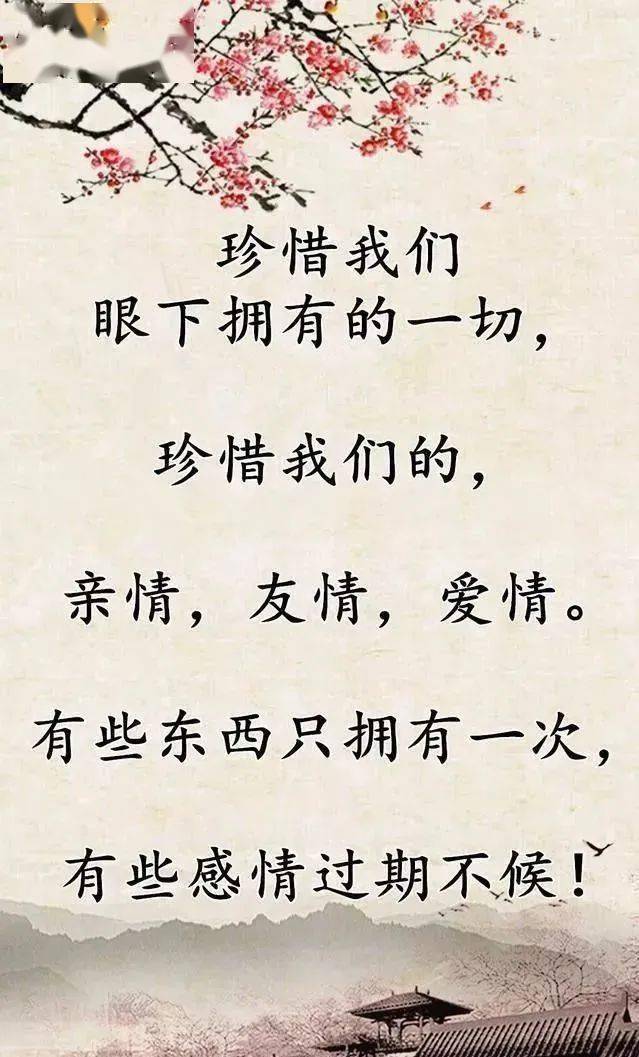 珍惜我们
眼下拥有的一切，
珍惜我们的，
亲情，友情，爱情。
有些东西只拥有一次，
有些感情过期不候！